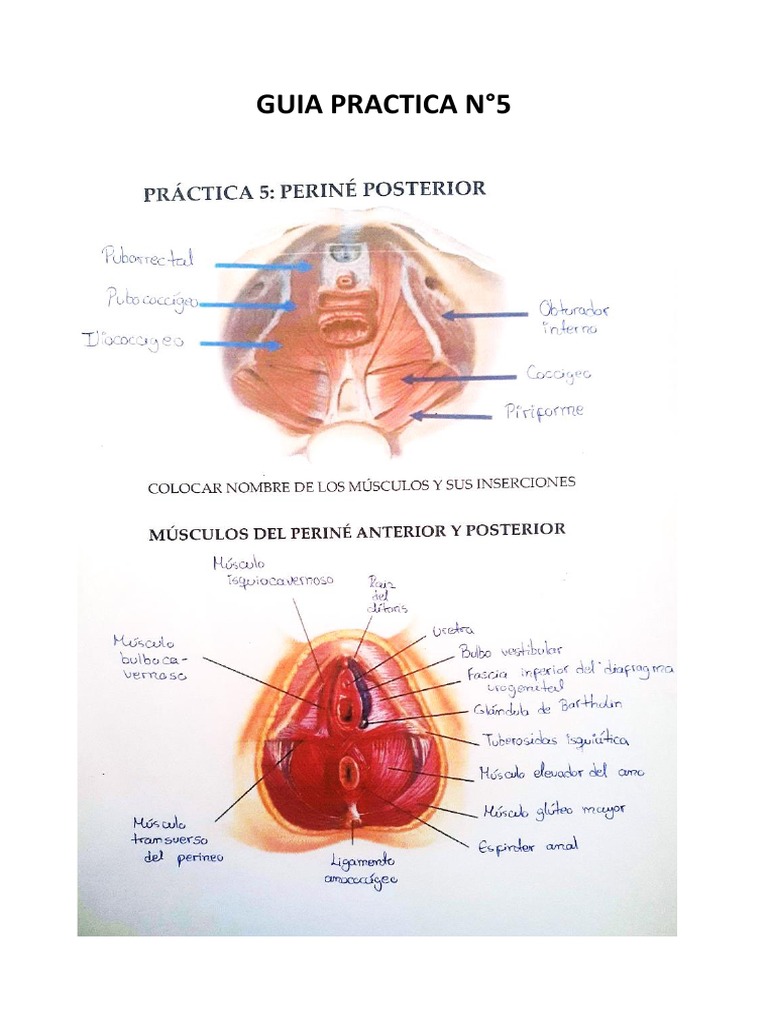 GUIA PRACTICA N°5
PRÁCTICA 5: PERINÉ POSTERIOR
Puborrectal
Pubococcígeo
Iliococcígeo
Obturador
interno
Coccígeo
Piriforme
COLOCAR NOMBRE DE LOS MÚSCULOS Y SUS INSERCIONES
MÚSCULOS DEL PERINÉ ANTERIOR Y POSTERIOR
Músculo
isquiocavernoso
Raiz
del
clítoris
Uretra
Bulbo vestibular
Fascia inferior del diafragma
urogenital
Glándula de Bartholin
Tuberosidas isquiática
Músculo elevador del ano
Músculo glúteo mayor
Esfinter anal
Músculo
bulboca-
vernoso
Músculo
transverso
del perineo
Ligamento
anococcígeo